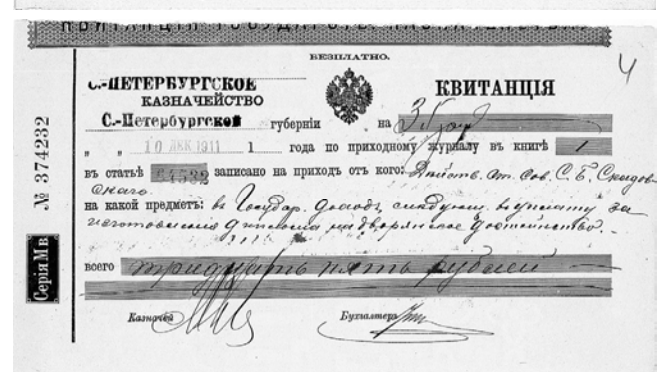 БЕЗПЛАТНО.
С.-ПЕТЕРБУРГСКОЕ
КАЗНАЧЕЙСТВО
С.-Петербургской губерніи
КВИТАНЦІЯ
4
на
10 ДЕК 1911 1 года по приходному журналу въ книгѣ 1
въ статьѣ 64532 записано на приходъ отъ кого: Дѣйств. Ст. Сов. С. Б.
на какой предметъ: въ Государ. доходъ, слѣдующ. въ уплату за
изготовленіе диплома на дворянское достоинство.
всего тридцать пять рублей
Казначей
Бухгалтеръ
№ 374232
Серія М в.